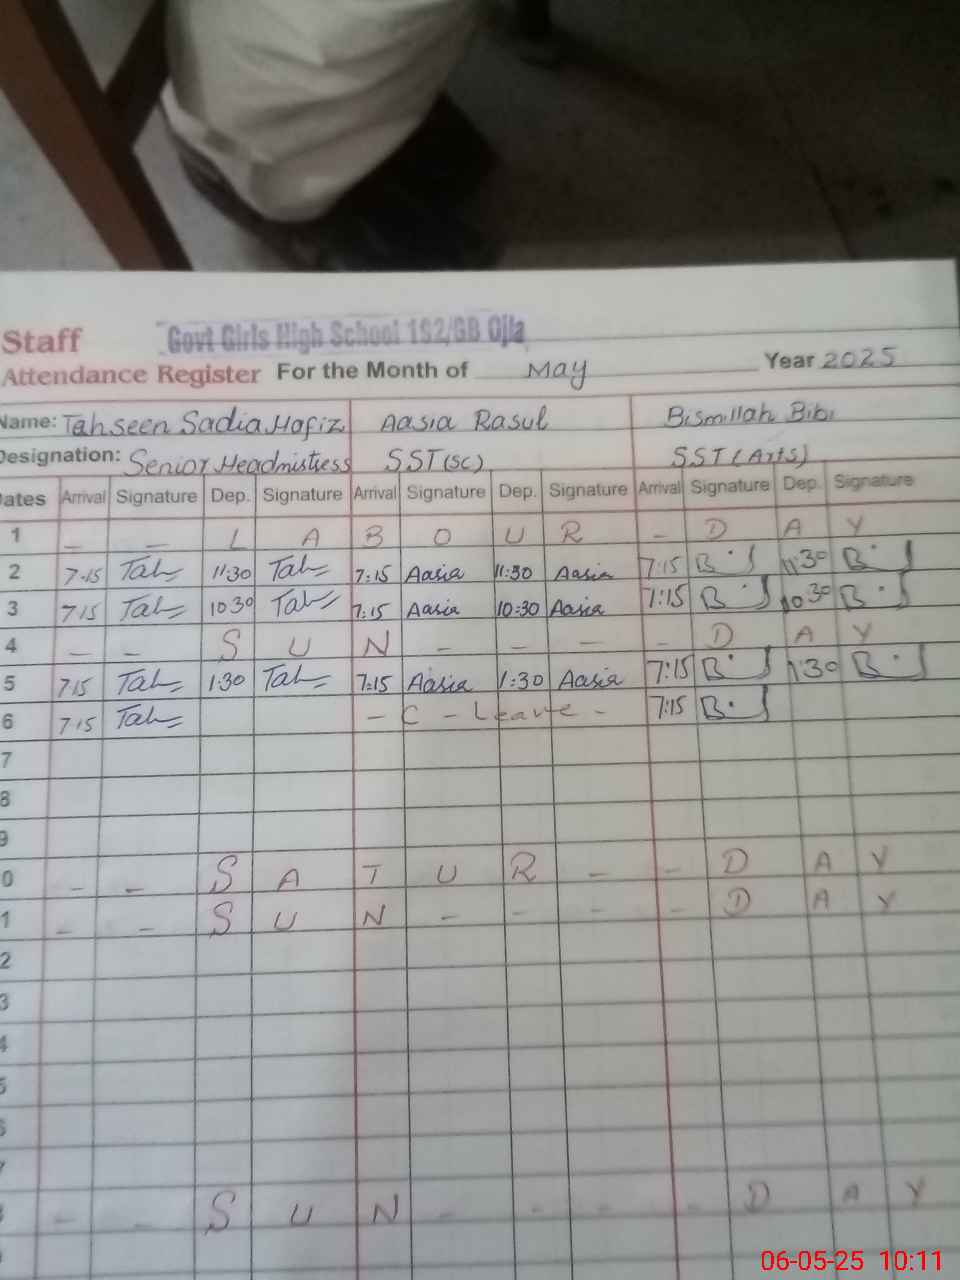 Staff Govt Girls High School 1S2/GB Ojla
Attendance Register For the Month of May Year 2025
Name: Tahseen Sadia Hafiz Aasia Rasul Bismillah Bibi
Designation: Senior Headmistress SST(SC) SST(Arts)
Dates Arrival Signature Dep. Signature Arrival Signature Dep. Signature Arrival Signature Dep. Signature
1 - - L A B O U R - D A Y
2 7-15 Tah 11:30 Tah 7:15 Aasia 11:30 Aasia 7:15 B 11:30 B
3 7:15 Tah 10 30 Tah 7:15 Aasia 10:30 Aasia 7:15 B 10 30 B
4 - - S U N - - - - D A Y
5 7:15 Tah 1:30 Tah 7:15 Aasia 1:30 Aasia 7:15 B 1:30 B
6 7:15 Tah - C - Leave - 7:15 B
7
8
9
0 - - S A T U R - - D A Y
1 - - S U N - - - - D A Y
2
3
4
5
6
7
8 - - S U N - - - - D A Y
06-05-25 10:11